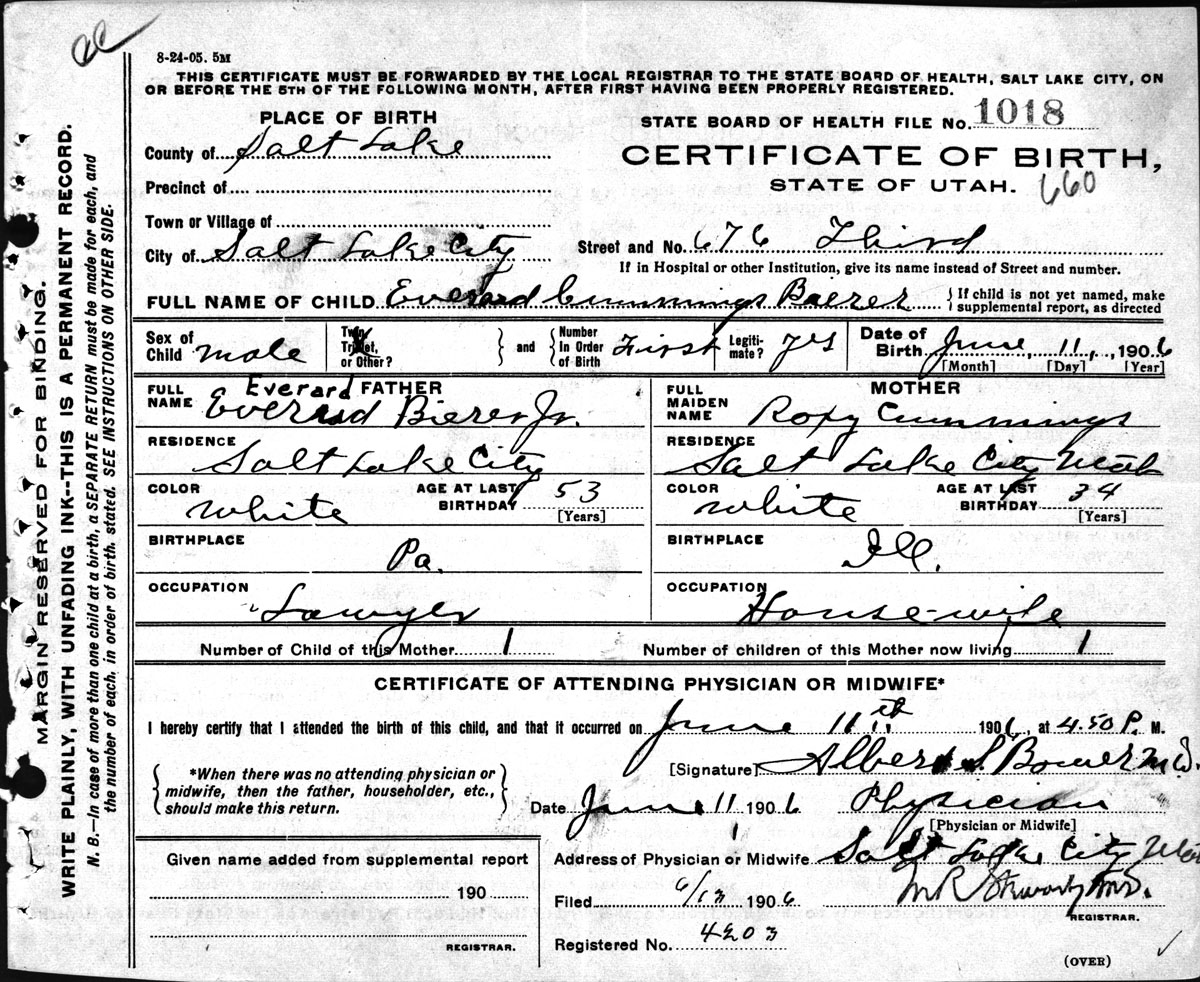 8-24-05. 5M
THIS CERTIFICATE MUST BE FORWARDED BY THE LOCAL REGISTRAR TO THE STATE BOARD OF HEALTH, SALT LAKE CITY, ON
OR BEFORE THE 5TH OF THE FOLLOWING MONTH, AFTER FIRST HAVING BEEN PROPERLY REGISTERED.
MARGIN RESERVED FOR BINDING.
WRITE PLAINLY, WITH UNFADING INK--THIS IS A PERMANENT RECORD.
N. B.—In case of more than one child at a birth, a SEPARATE RETURN must be made for each, and
the number of each, in order of birth, stated. SEE INSTRUCTIONS ON OTHER SIDE.
PLACE OF BIRTH
STATE BOARD OF HEALTH FILE No. 1018
County of Salt Lake
CERTIFICATE OF BIRTH,
Precinct of
STATE OF UTAH. 660
Town or Village of
City of Salt Lake City
Street and No. 676 Third
If in Hospital or other Institution, give its name instead of Street and number.
FULL NAME OF CHILD Everard Cummings Bierer
{ If child is not yet named, make
supplemental report, as directed
Sex of Child Male
Twin, Triplet, or Other?
} and { Number In Order of Birth First
Legitimate? Yes
Date of Birth June, 11, 1906
[Month] [Day] [Year]
FATHER
FULL NAME Everard
Everard Bierer Jr.
MOTHER
FULL MAIDEN NAME Roxy Cummings
RESIDENCE
Salt Lake City
RESIDENCE
Salt Lake City Utah
COLOR White
AGE AT LAST BIRTHDAY 53
[Years]
COLOR White
AGE AT LAST BIRTHDAY 34
[Years]
BIRTHPLACE
Pa.
BIRTHPLACE
Ill.
OCCUPATION
Lawyer
OCCUPATION
House-wife
Number of Child of this Mother 1
Number of children of this Mother now living 1
CERTIFICATE OF ATTENDING PHYSICIAN OR MIDWIFE*
I hereby certify that I attended the birth of this child, and that it occurred on June 11th 1906, at 4.50 P. M.
{ *When there was no attending physician or
midwife, then the father, householder, etc.,
should make this return. }
[Signature] Albert S Bower M.D.
Date June 11 1906 Physician
[Physician or Midwife]
Address of Physician or Midwife Salt Lake City
Given name added from supplemental report
190
REGISTRAR.
Filed 6/13 1906
REGISTRAR.
Registered No. 4203
(OVER)